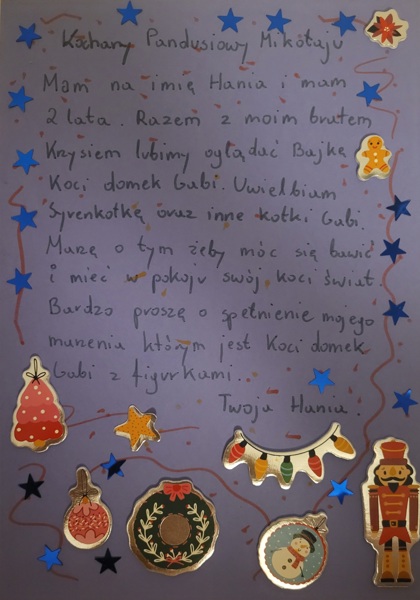 Kochany Pandusiowy Mikołaju
Mam na imię Hania i mam
2 lata. Razem z moim bratem
Krzysiem lubimy oglądać Bajkę
Koci domek Gabi. Uwielbiam
Syrenkotkę oraz inne kotki Gabi.
Marzę o tym żeby móc się bawić
i mieć w pokoju swój koci świat.
Bardzo proszę o spełnienie mojego
marzenia którym jest Koci domek
Gabi z figurkami.
Twoja Hania.